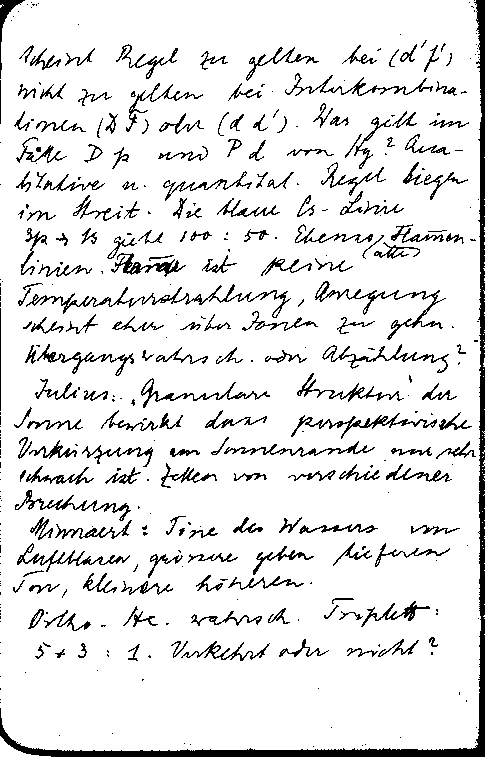 scheint Regel zu gelten bei (d'f')
nicht zu gelten bei Interkombina-
tionen (D F̄) oder (d d'). Was gilt im
Falle D p und P d von Hg? Qua-
litative u. quantitat. Regel liegen
im Streit. Die blaue Cs-Linie
3p → 1s giebt 100 : 50. Ebenso (alle) Flamen-
linien. ist keine
Temperaturstrahlung, Anregung
scheint eher über Ionen zu gehn.
Übergangswahrsch. oder Abzählung?
Julius: "Granulare Struktur" der
Sonne bewirkt dass perspektivische
Verkürzung am Sonnenrande nur sehr
schwach ist. Zellen von verschiedener
Brechung.
Minnaert: Töne des Wassers von
Luftblasen, grössere geben tieferen
Ton, kleinere höheren.
Ortho-He. wahrsch. Triplett:
5 + 3 : 1. Verkehrt oder nicht?